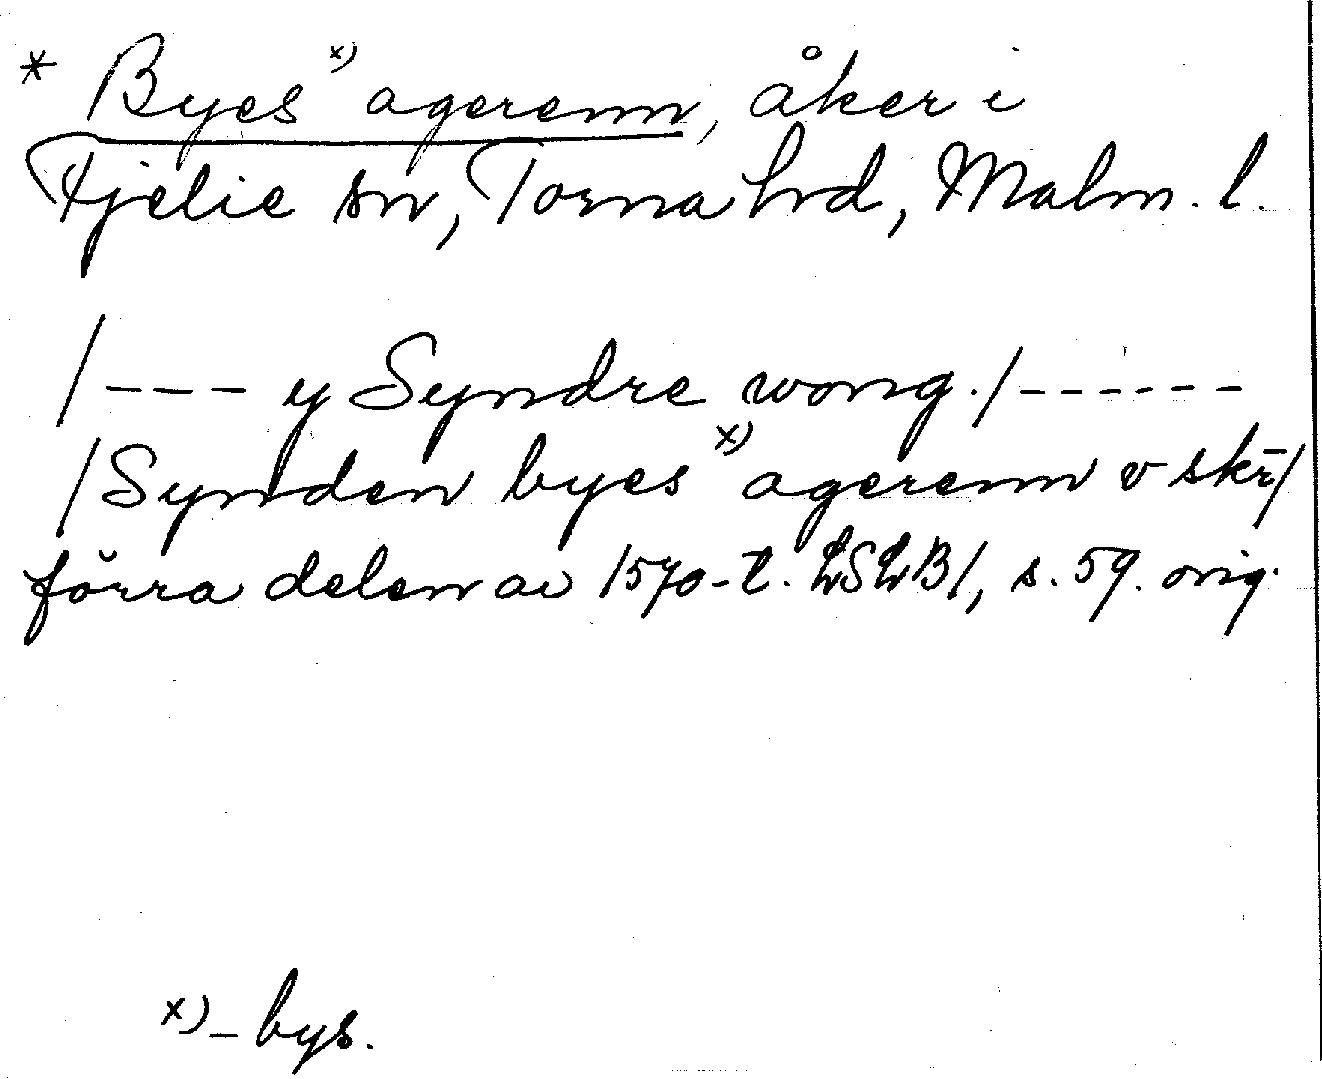 * Byes x) agerenn, åker i
Fjelie sn, Torna hrd, Malm. l.
/--- y Syndre wong./------
/Synden byes x) agerenn v skr̄/
förra delen av 1570-t. LSLB1, s. 59. orig.
x) – bys.